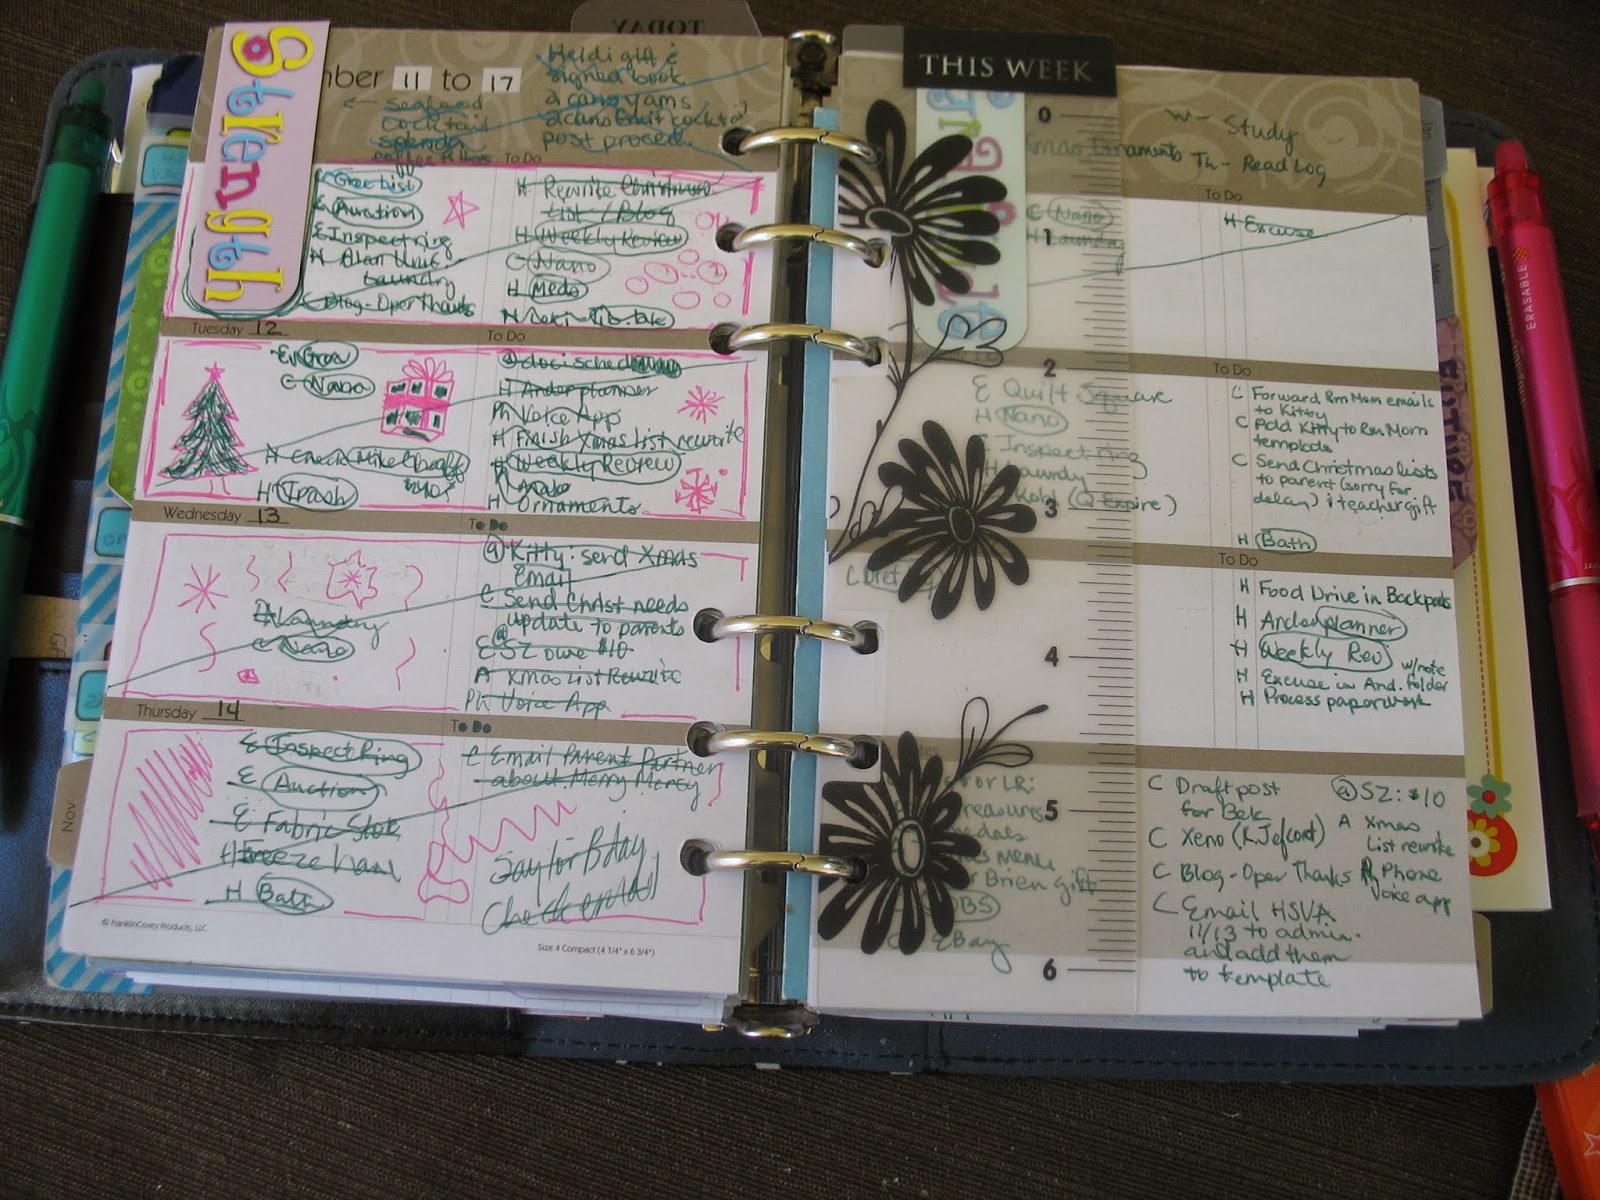 TODAY
Strength
mber 11 to 17
Heidi gift &
signed book
2 cans yams
2 cans fruit cocktail
post proced.
← Seafood
cocktail
splenda
coffee filters
To Do
Groc List
Auction
E Inspect ring
H
Laundry
Blog-Oper Thanks
H Rewrite Christmas
List / Blog
H Weekly Review
C Nano
H Meds
Tuesday 12
To Do
E Groc
C Nano
H Trash
H Anden planner
Ph Voice App
H Finish Xmas list rewrite
H Weekly Review
H Ornaments
Wednesday 13
To Do
H Laundry
C Nano
@ Kitty: send Xmas
Email
C Send Christ needs
update to parents
E SZ owe $10
A Xmas List Rewrite
Ph Voice App
Thursday 14
To Do
E Inspect Ring
E Auction
E Fabric Stor
H Freeze ham
H Bath
C Email Parent Partner
about Merry Mercy
Taylor Bday
Nov
© FranklinCovey Products, LLC
Size 4 Compact (4 1/4" x 6 3/4")
THIS WEEK
0
1
2
3
4
5
6
W - Study
Xmas Ornaments Th - Read Log
To Do
C Nano
H Laundry
H Excuse
To Do
E Quilt Square
H Nano
E Inspect ring
Laundry
Kohl (Q Expire)
C Forward Rm Mom emails
to Kitty
C Add Kitty to Rm Mom
template
C Send Christmas lists
to parent (sorry for
delay) & teacher gift
H Bath
To Do
H Food Drive in Backpacks
H Anden planner
H Weekly Rev
w/note
H Excuse in And. folder
H Process paperwork
for LR:
Treasures
medals
menu
Brien gift
EBay
C Draft post
for Bek
C Xeno (K. Jefcoat)
C Blog-Oper Thanks
C Email HSVA
11/13 to admin.
and add them
to template
@ SZ: $10
A Xmas
List rewrite
Ph Phone
Voice app
ERASABLE